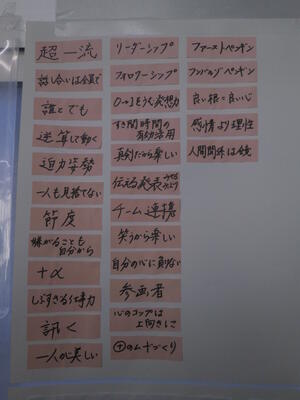 超一流
話し合いは全員で
誰とでも
逆算して動く
迫力姿勢
一人も見捨てない
節度
嫌がることも
自分から
+α
しぶすぎる行動力
訊く
一人が美しい
リーダーシップ
フォロワーシップ
0→1をうむ発想力
すき間時間の
有効活用
真剣だから楽しい
伝える発表
チーム連携
笑うから楽しい
自分の心に負けない
参画者
心のコップは
上向きに
⊕のムードづくり
ファーストペンギン
ファンバルゾペンギン
良い根=良い心
感情より理性
人間関係は鏡